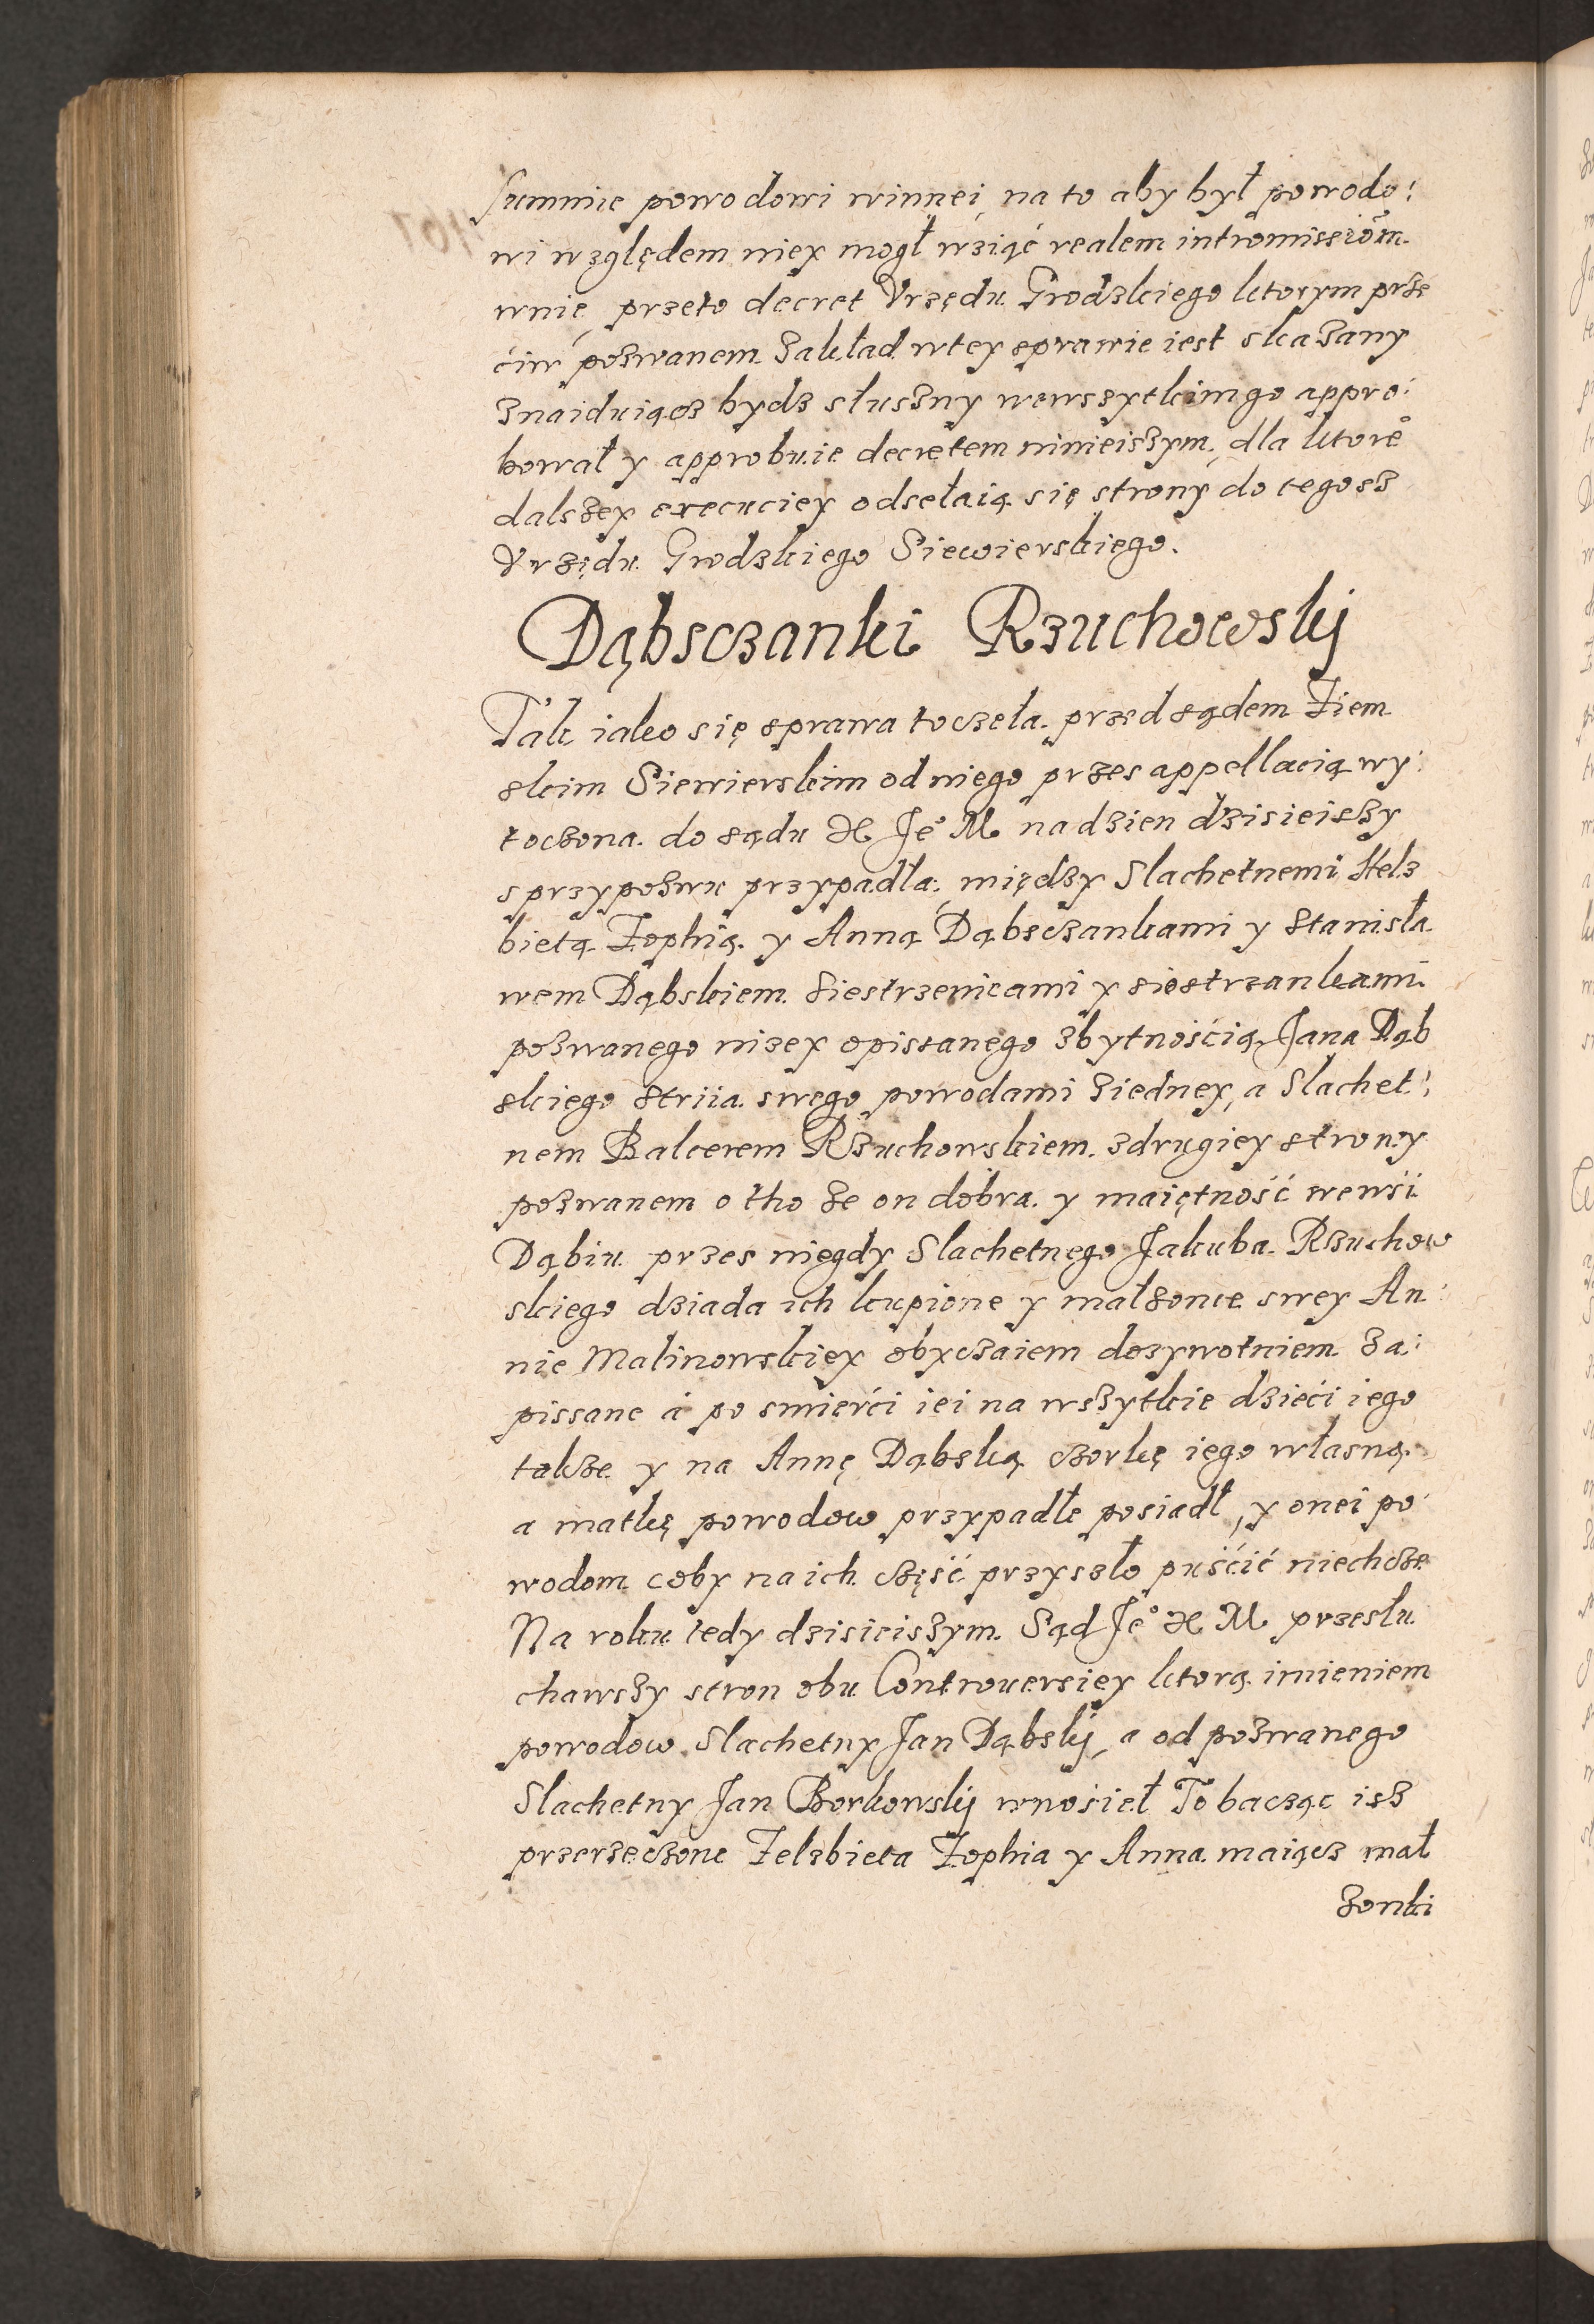 summie powodowi winnei, na to aby był powodo:
wi względem niey mogł wziąć realem intromissiom
wnie, przeto decret Vrzędu Grodzkiego ktorym prze
ciw pozwanem zakład wtey sprawie iest skazany
znaiduiącz bydz słuszny wewszytkim go appro:
bował y approbuie decretem ninieiszym, dla ktore͡°
dalszey execuciey odsełaią się strony do tegosz
Vrzędu Grodzkiego Siewierskiego.
Dąbsczanki Rzuchowskij
Tak iako się sprawa toczeła przed sądem Ziem
skim Siewierskim od niego przes appellacią wy:
toczona do sądu X Je° M na dzien dzisieiszy
s przypozwu przypadła, między Slachetnemi Helz
bietą Zophią y Anną Dąbsczankami y Stanisła
wem Dąbskiem siestrzenicami y siostrzankami
pozwanego nizey opissanego zbytnością Jana Dąb
skiego striia swego powodami ziedney, a Slachet:
nem Balcerem Rzuchowskiem zdrugiey strony
pozwanem o tho ze on dobra y maiętność wewsi
Dąbiu przes niegdy Slachetnego Jakuba Rzuchow
skiego dziada ich kupione y małzonce swey An:
nie Malinowskiey obyczaiem dozywotniem za:
pissane a po smierci iei na wszytkie dzieci iego
takze y na Annę Dąbską czorkę iego własną
a matkę powodow przypadłe posiadł, y onei po:
wodom coby na ich część przyszło puścić niechcze
Na roku tedy dzisieiszym Sąd Je° X M przesłu
chawszy stron obu Controuersiey ktorą imieniem
powodow Slachetny Jan Dąbskij, a od pozwanego
Slachetny Jan Borkowskij wnosieł To bacząc isz
przerzeczone Zelzbieta Zophia y Anna maiącz mał
zonki